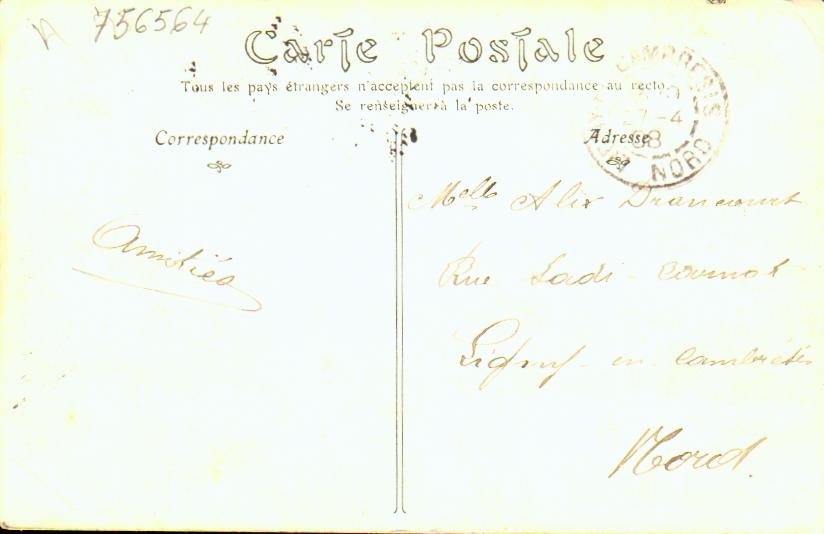 756564
Carte Postale
Tous les pays étrangers n'acceptent pas la correspondance au recto.
Se renseigner à la poste.
Correspondance
Amitiés
Adresse
CAMBRESIS
27-4
08
NORD
Melle Alix Drancourt
Rue Sadi-Carnot
Ligny-en-Cambrésis
Nord.